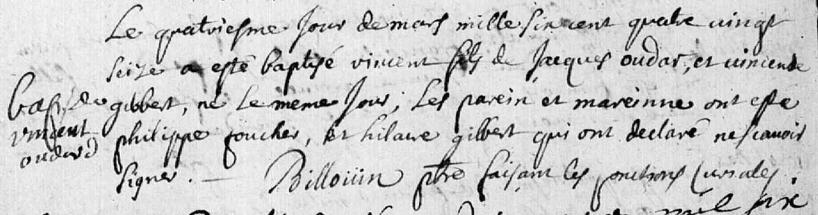 Le quatriesme Jour de mars mille six cent quatre vingt
seize a esté baptisé vincent fils de Jacques oudar, et vincende
gibbert, né Le meme Jour; Les parein et mareinne ont esté
philippe foucher, et hilaire gilbert qui ont declaré ne scavoir
signer. — Billouin ptre faisant les fonctions Curiales.
bap. de
vincent
oudard
mil six